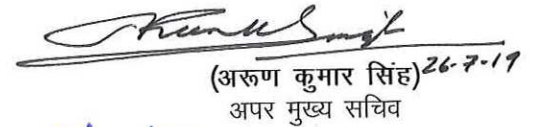 (अरूण कुमार सिंह) 26-7-19
अपर मुख्य सचिव